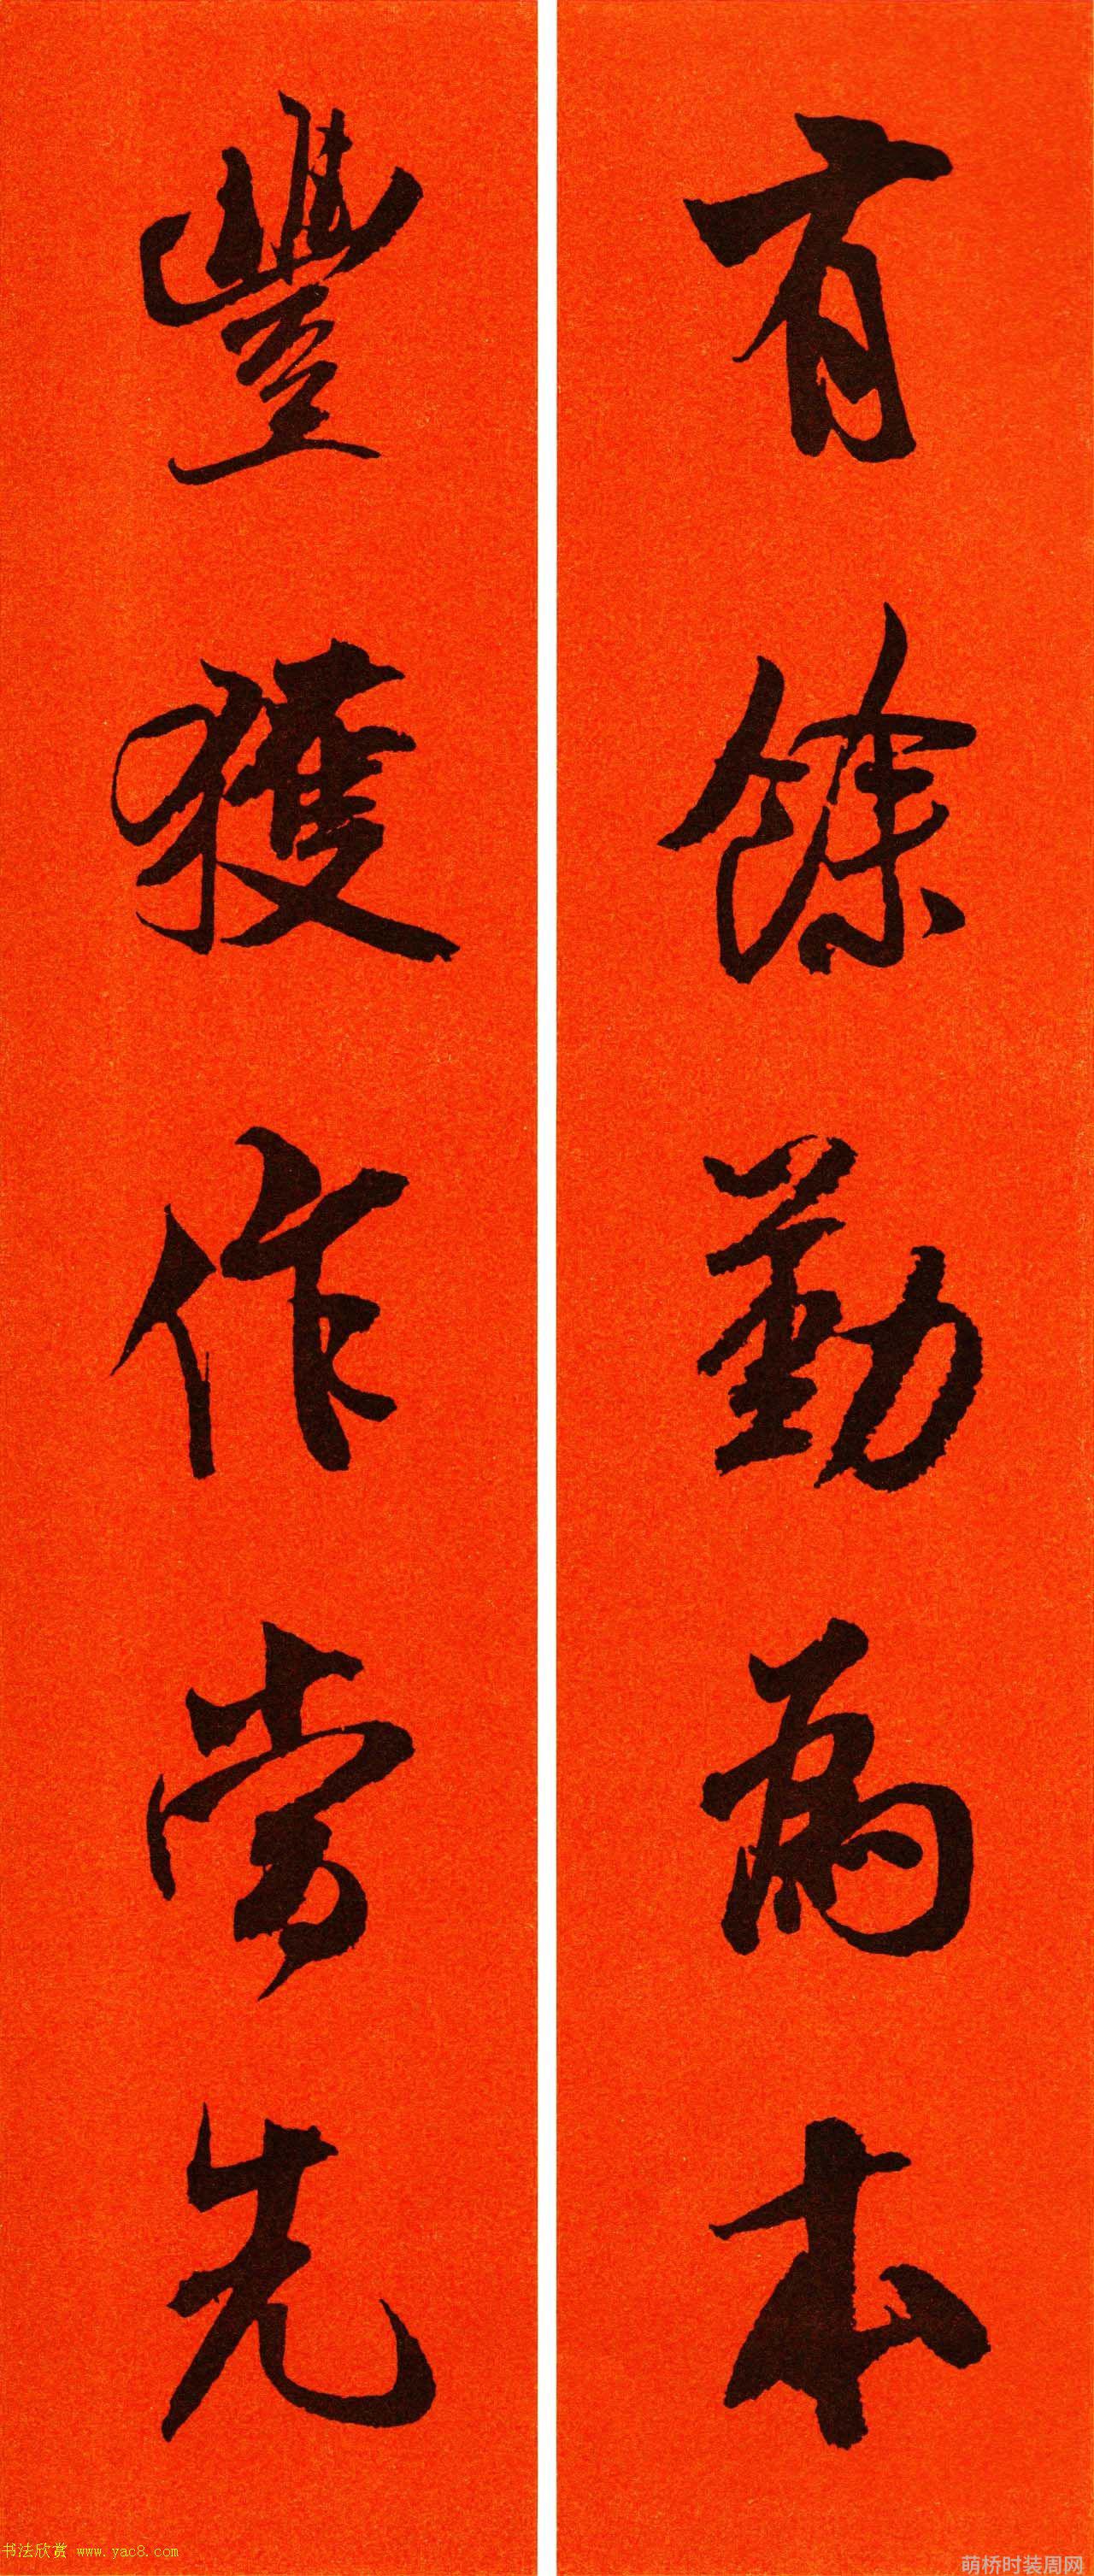 有餘勤為本
豐獲作勞先
书法欣赏 www.yac8.com
萌桥时装周网